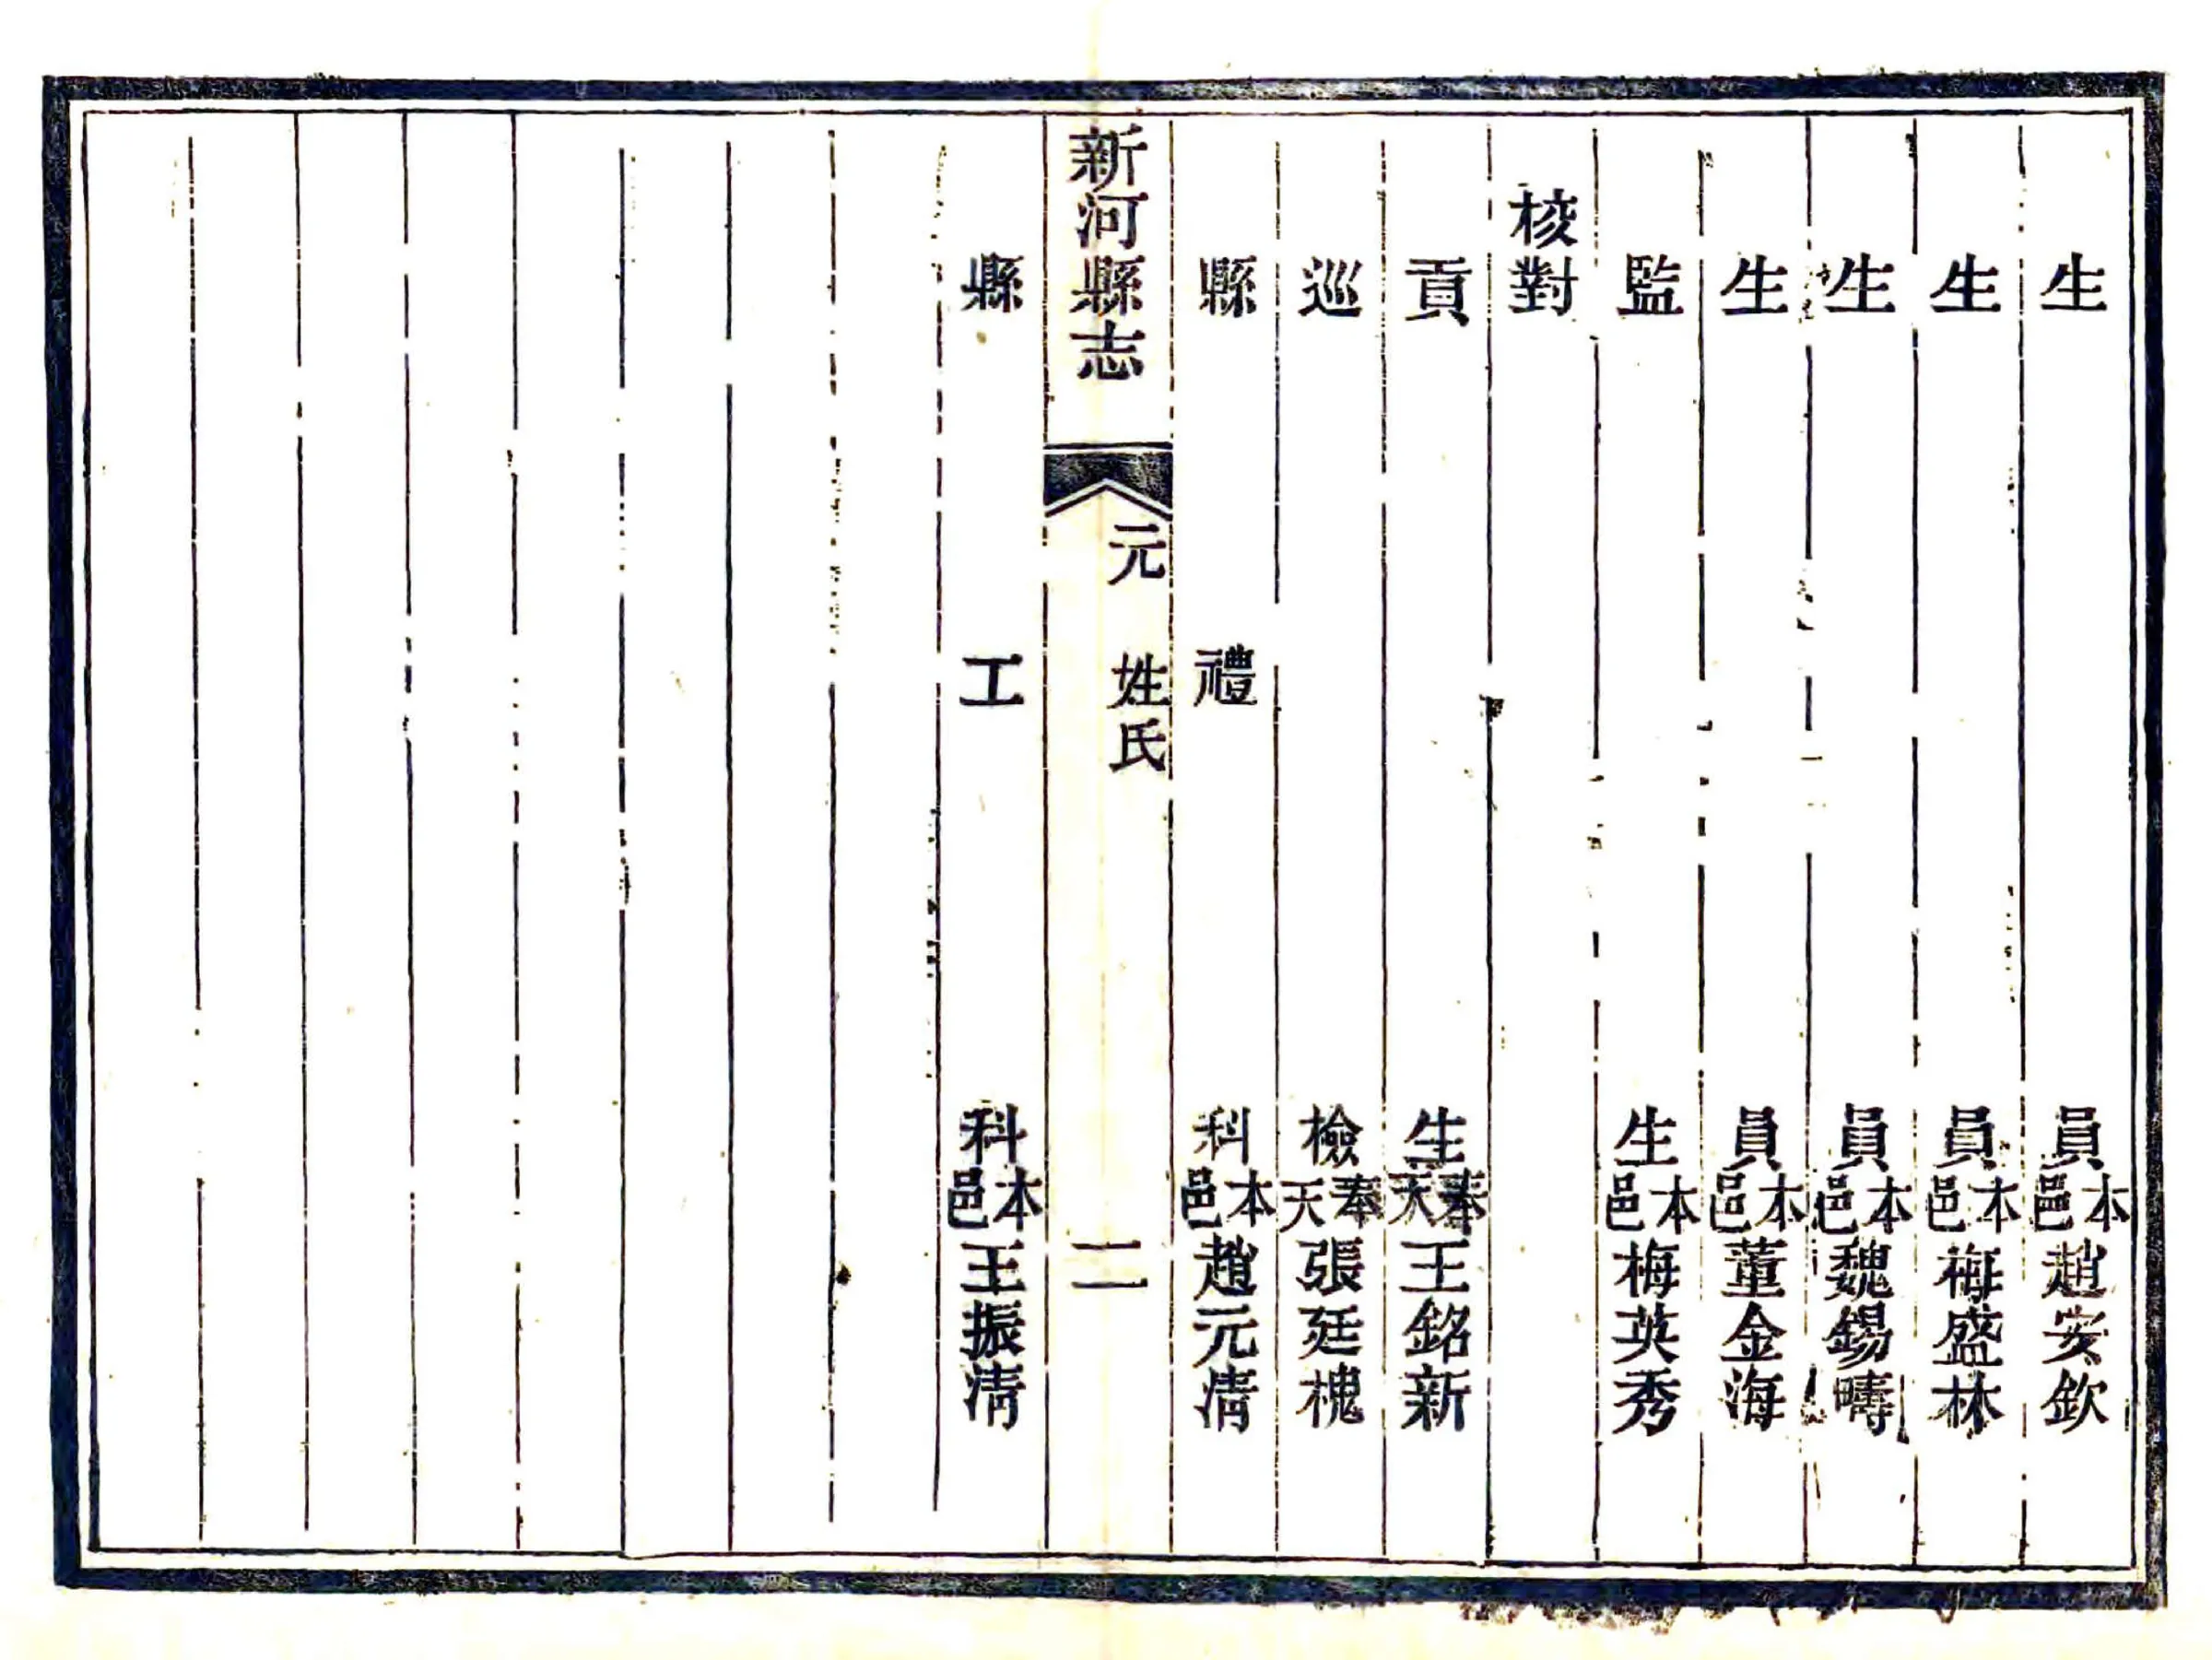 生員本邑趙安欽
生員本邑梅盛林
生員本邑魏錫疇
生員本邑董金海
監生本邑梅英秀
校對
貢生奉天王銘新
巡檢奉天張廷槐
縣禮科本邑趙元清
新河縣志 元 姓氏 二
縣工科本邑王振清